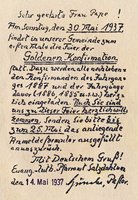 Sehr geehrte Frau Pape!
Am Sonntag, dem 30. Mai 1937
findet in unserer Gemeinde zum
ersten Male die Feier der
Goldenen Konfirmation
statt. Dazu werden alle
den Konfirmanden des Jahrgan-
ges 1887 und der Jahrgänge
davor (1886, 1885 u.s.w.) herz-
lich eingeladen. Auch Sie sind
uns zu dieser Feier herzlich will-
kommen. Senden Sie bitte bis
zum 25. Mai das anliegende
Anmeldeformular ausgefüllt
zurück.
Mit Deutschem Gruß!
Evang.-luth. Pfarramt Salzdahlum
den 14. Mai 1937